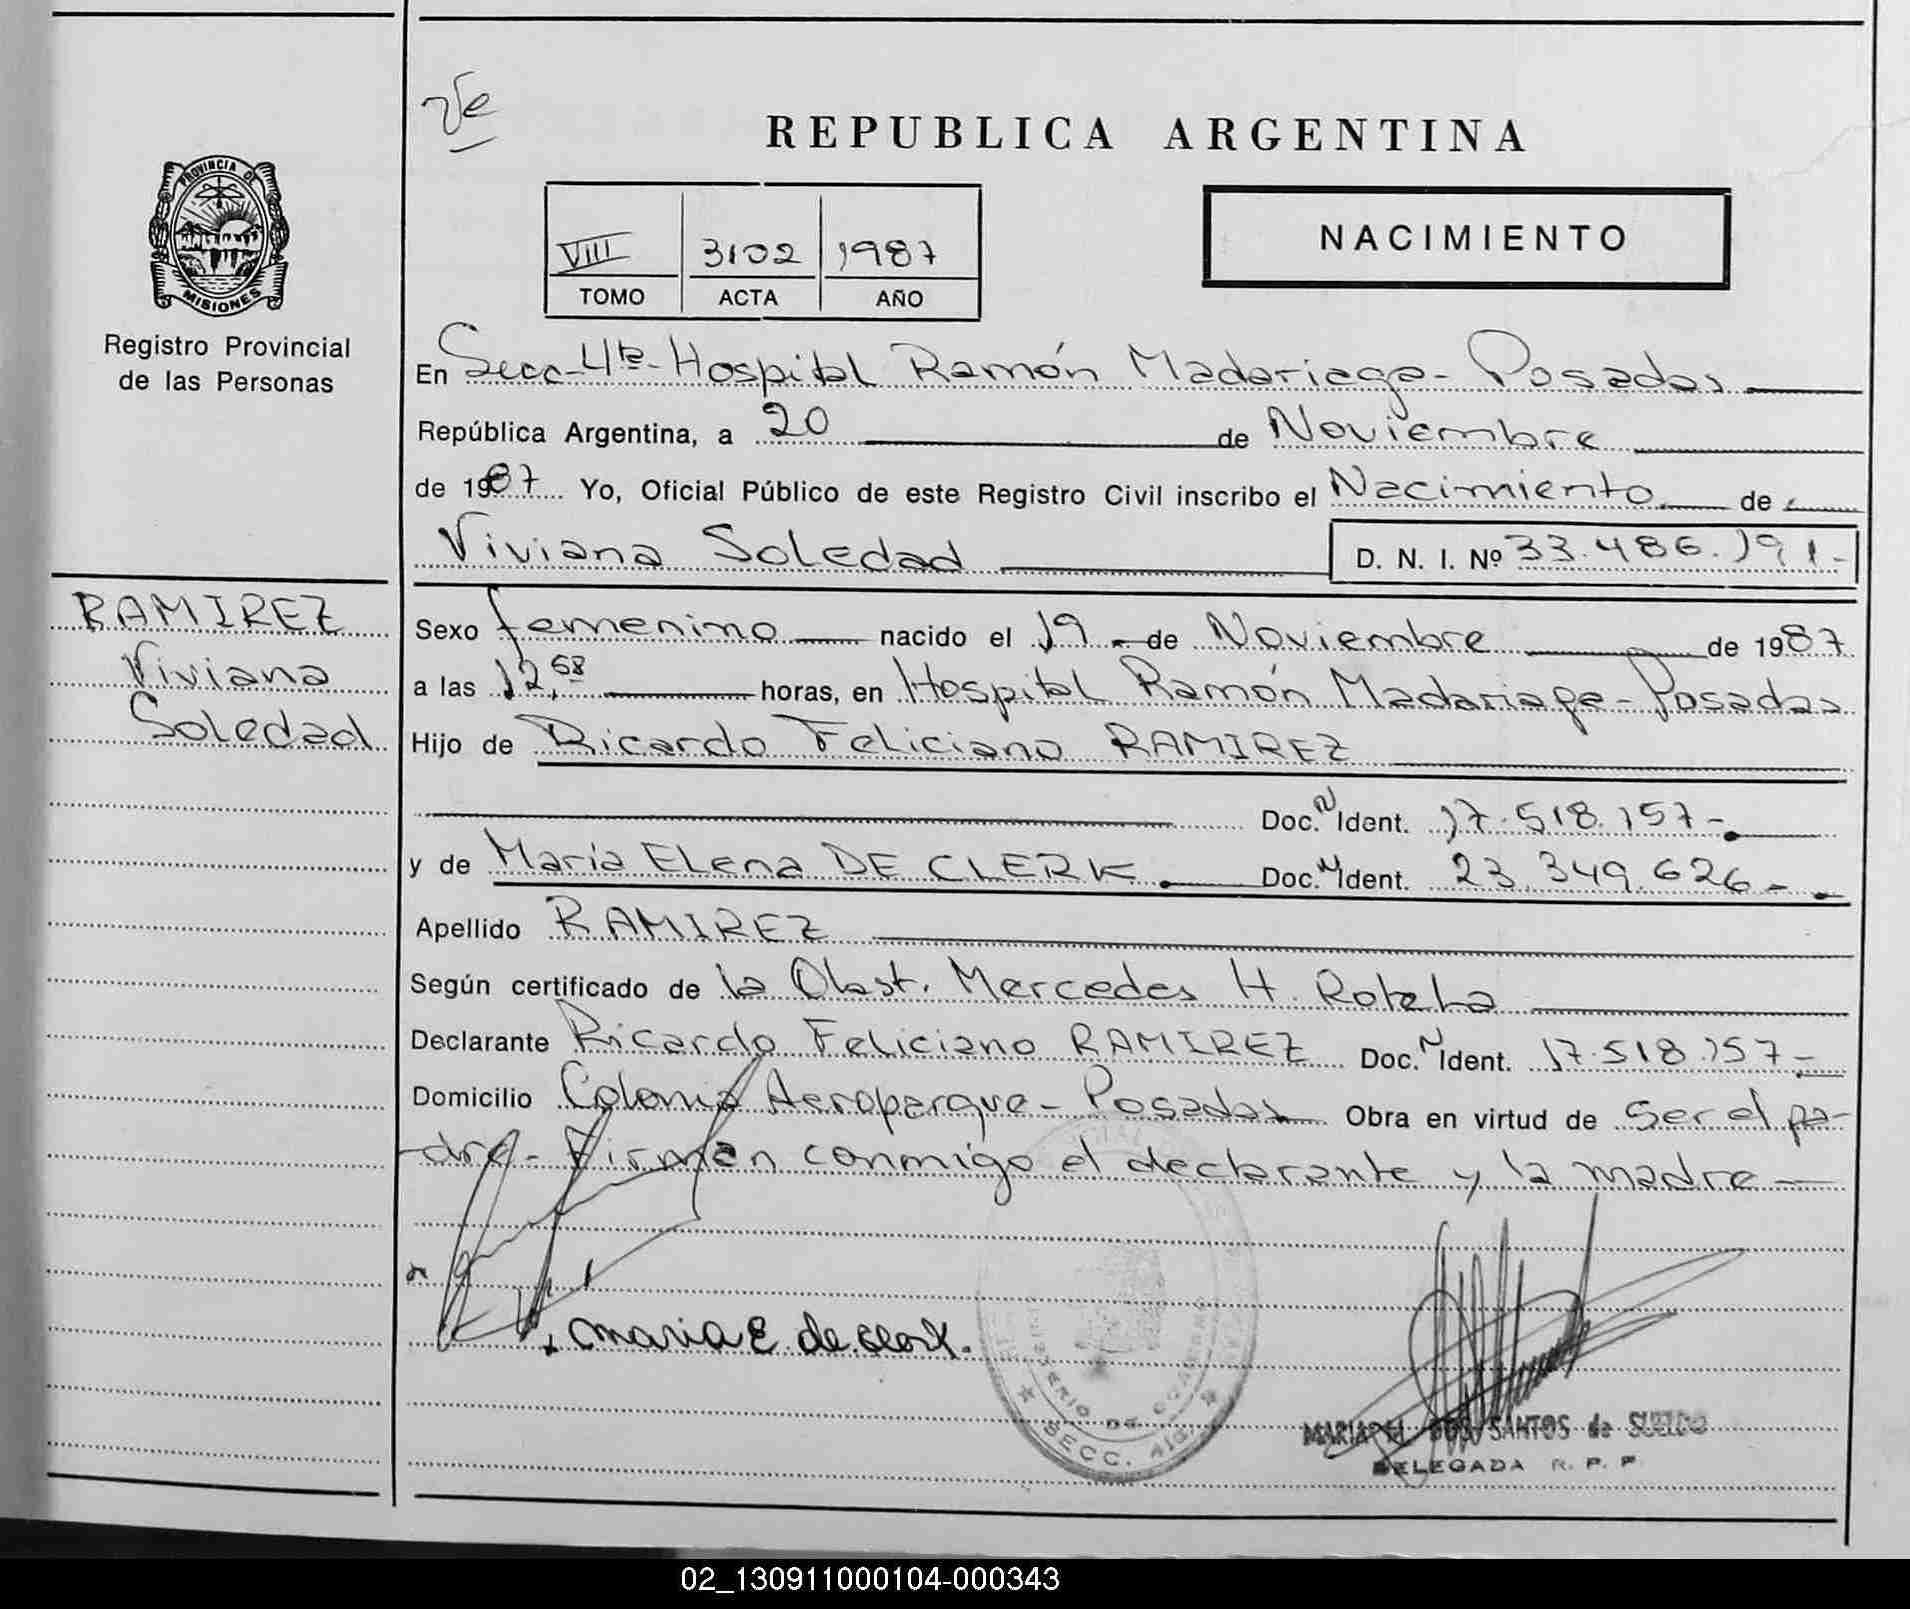 Ve
REPUBLICA ARGENTINA
PROVINCIA DE
MISIONES
Registro Provincial
de las Personas
VIII 3102 1987
TOMO ACTA AÑO
NACIMIENTO
En Secc-4ta-Hospital Ramón Madariaga-Posadas
República Argentina, a 20 de Noviembre
de 1987 Yo, Oficial Público de este Registro Civil inscribo el Nacimiento de
Viviana Soledad D. N. I. Nº 33.486.191-
RAMIREZ
Viviana
Soledad
Sexo femenino nacido el 19 de Noviembre de 1987
a las 12,58 horas, en Hospital Ramón Madariaga-Posadas
Hijo de Ricardo Feliciano RAMIREZ
Doc. N Ident. 17.518.157-
y de María Elena DE CLERK Doc. N Ident. 23.349.626-
Apellido RAMIREZ
Según certificado de la Obst. Mercedes H. Rotela
Declarante Ricardo Feliciano RAMIREZ Doc. N Ident. 17.518.157-
Domicilio Colonia Aeroparque-Posadas Obra en virtud de ser el pa-
dre- Firman conmigo el declarante y la madre
maria E de clerk.
MINISTERIO DE GOBIERNO
SECC. 4ta
MARIA H. DOS SANTOS de
DELEGADA R. P. P.
02_130911000104-000343